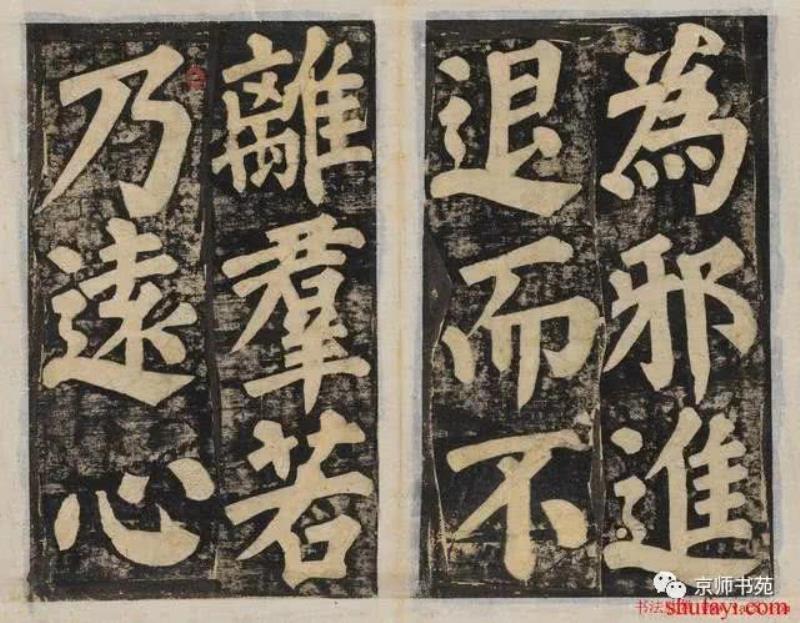 為邪進
退而不
離羣若
乃遠心
京师书苑
shufayi.com